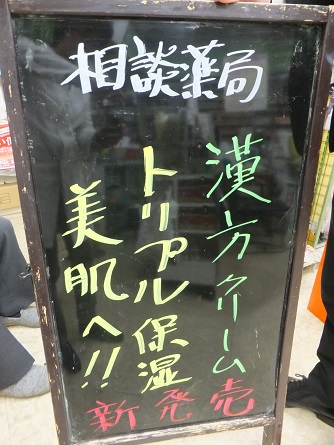 相談薬局
漢方クリーム
トリプル保湿
美肌へ!!
新発売